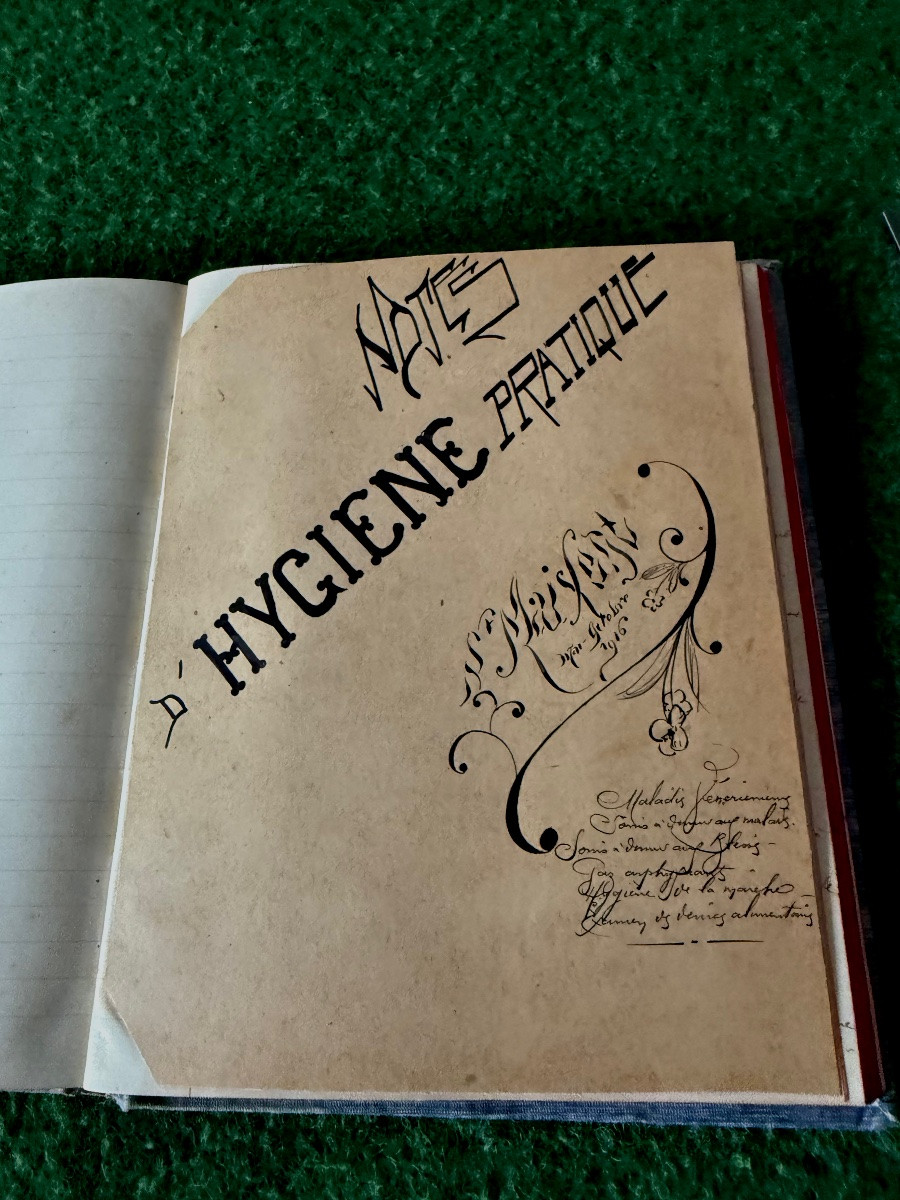 NOTES
D'HYGIENE PRATIQUE
St Maixent
1916
Maladies Vénériennes
Soins à donner aux malades.
Soins à donner aux Blessés -
Gaz asphyxiants
Hygiène de la marche -
Examen des denrées alimentaires